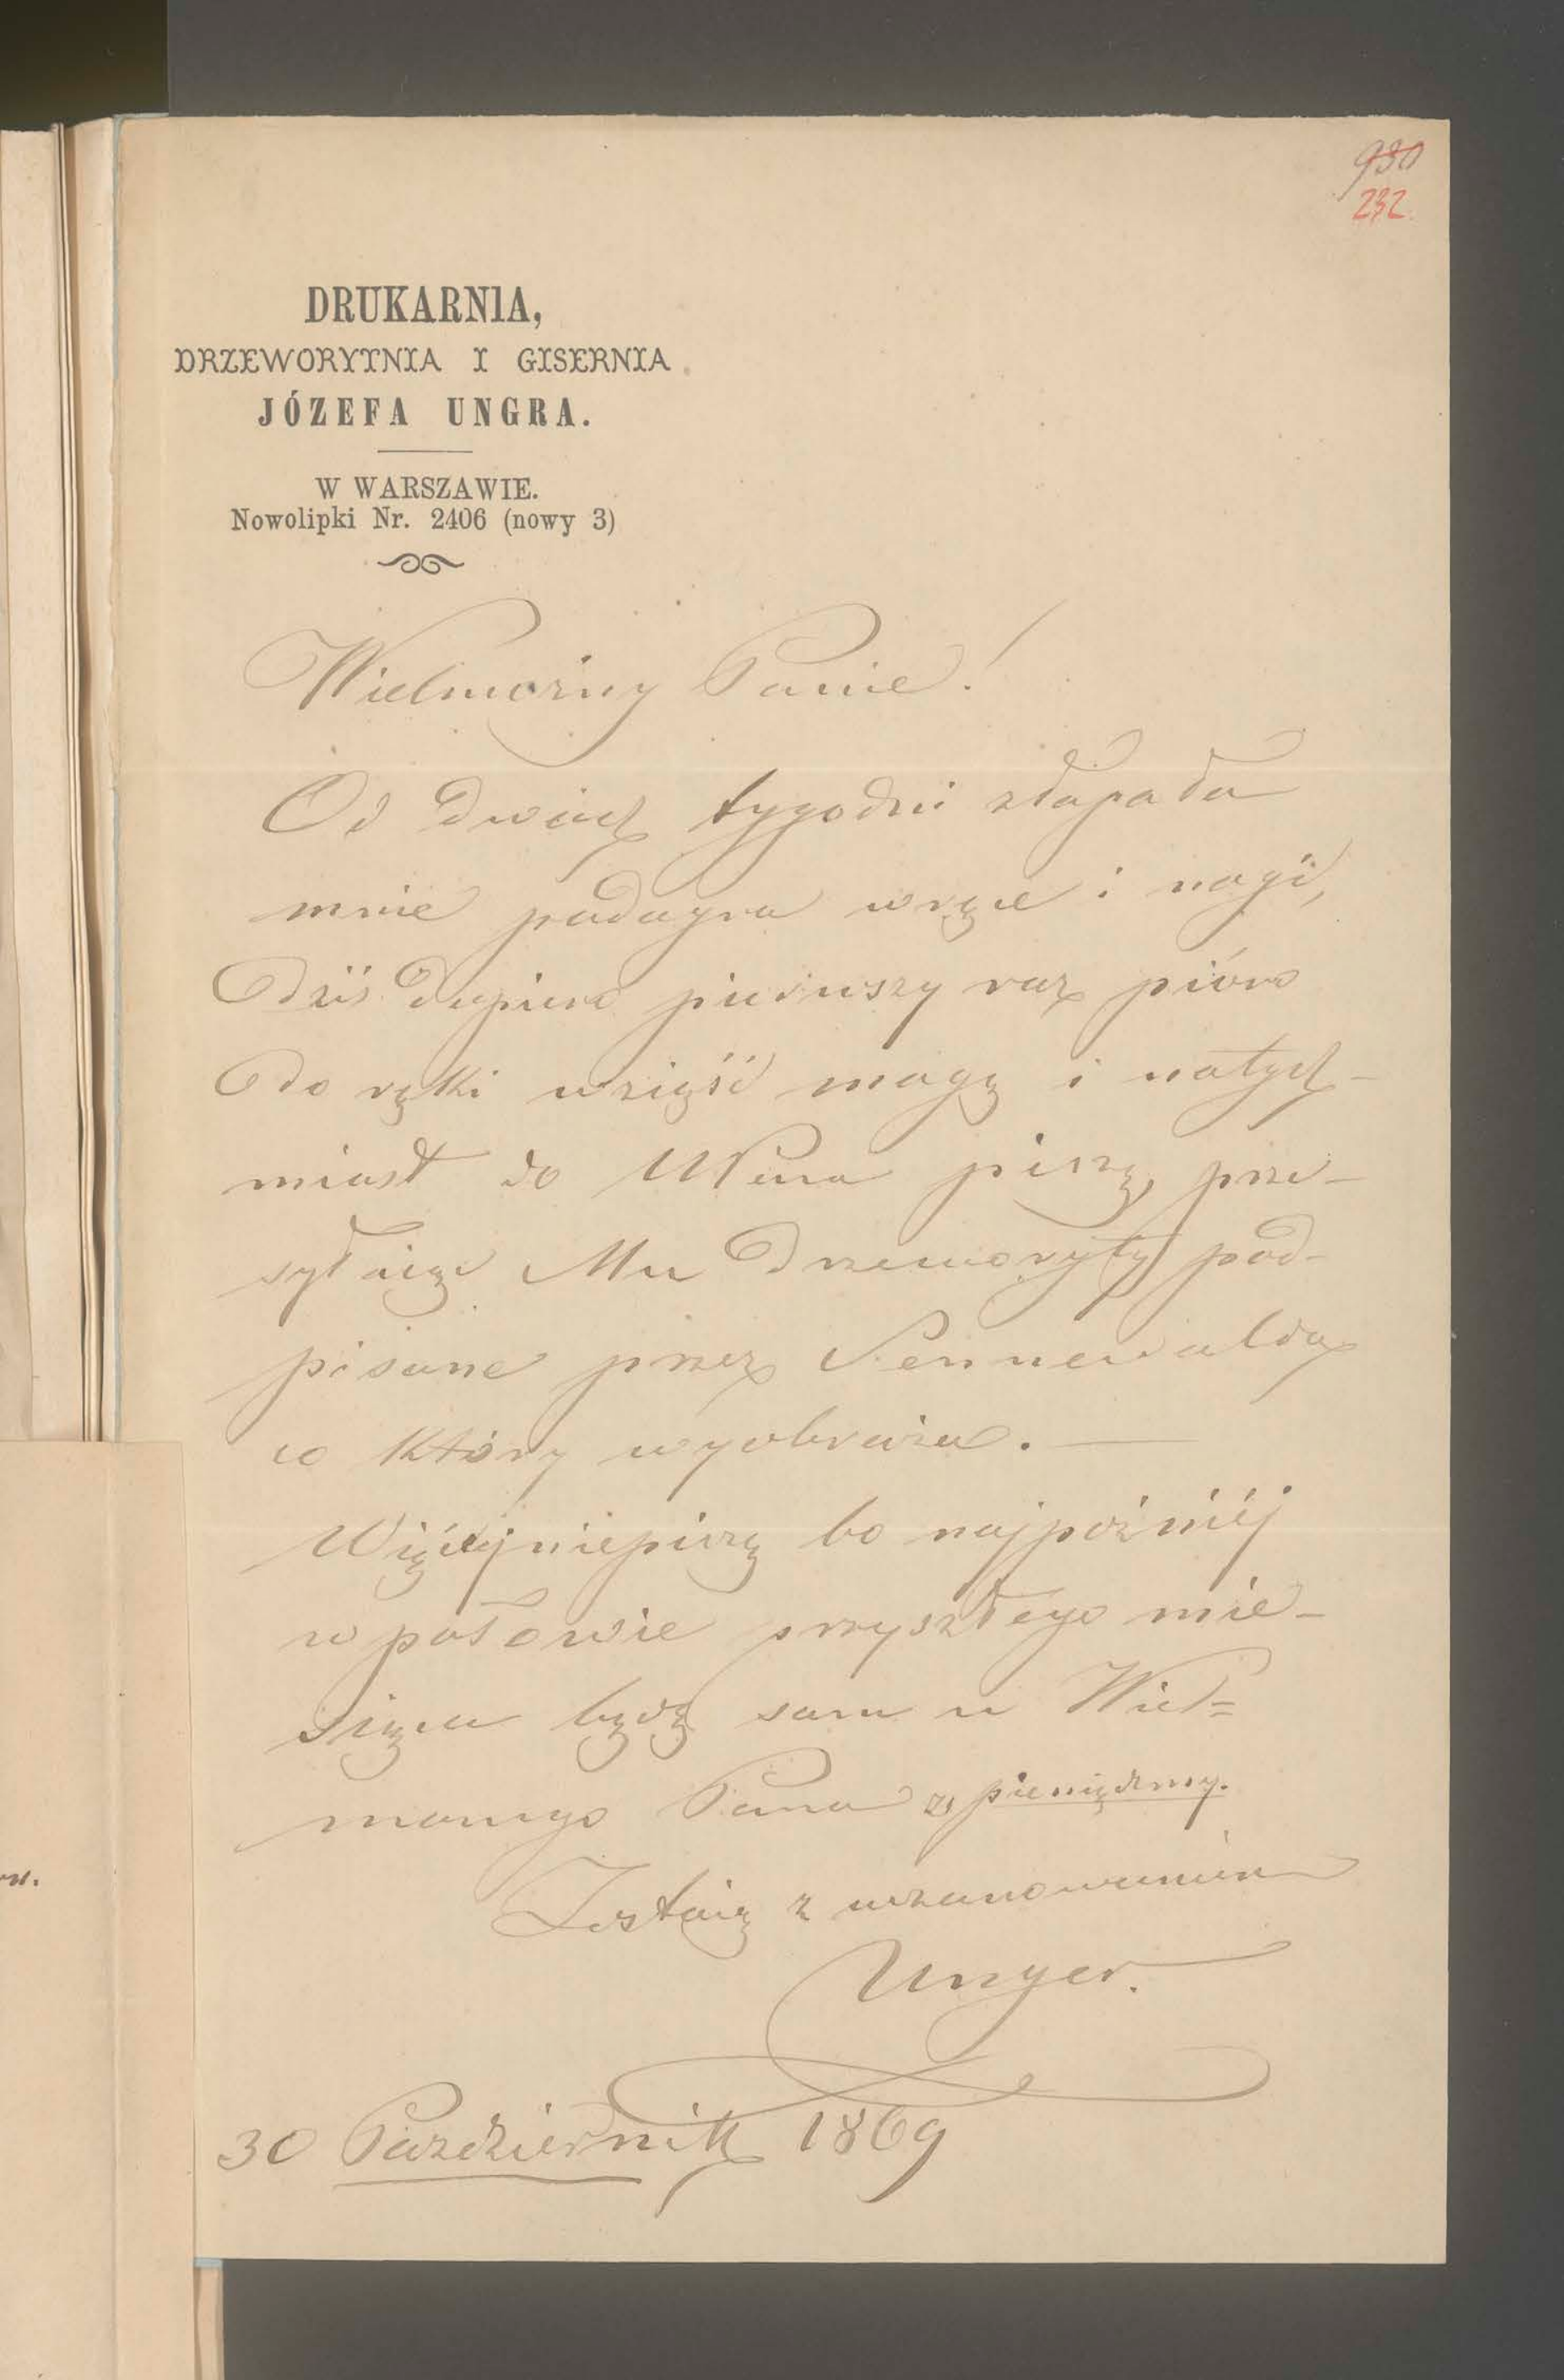 930
232.
DRUKARNIA,
DRZEWORYTNIA I GISERNIA
JÓZEFA UNGRA.
W WARSZAWIE.
Nowolipki Nr. 2406 (nowy 3)
Wielmożny Panie!
Od dwóch tygodni złapała
mnie podagra w ręce i nogi,
dziś dopiero pierwszy raz pióro
do ręki wziąść mogę i natych-
miast do WPana piszę, prze-
syłając Mu drzeworyty pod-
pisane przez Sennewalda
co który wyobraża. —
Więcéj niepiszę bo najpóźniéj
w połowie przyszłego mie-
siąca będę sam u Wiel=
możnego Pana z pieniędzmy.
Zostaię z uszanowaniem
Unger.
30 Październik 1869